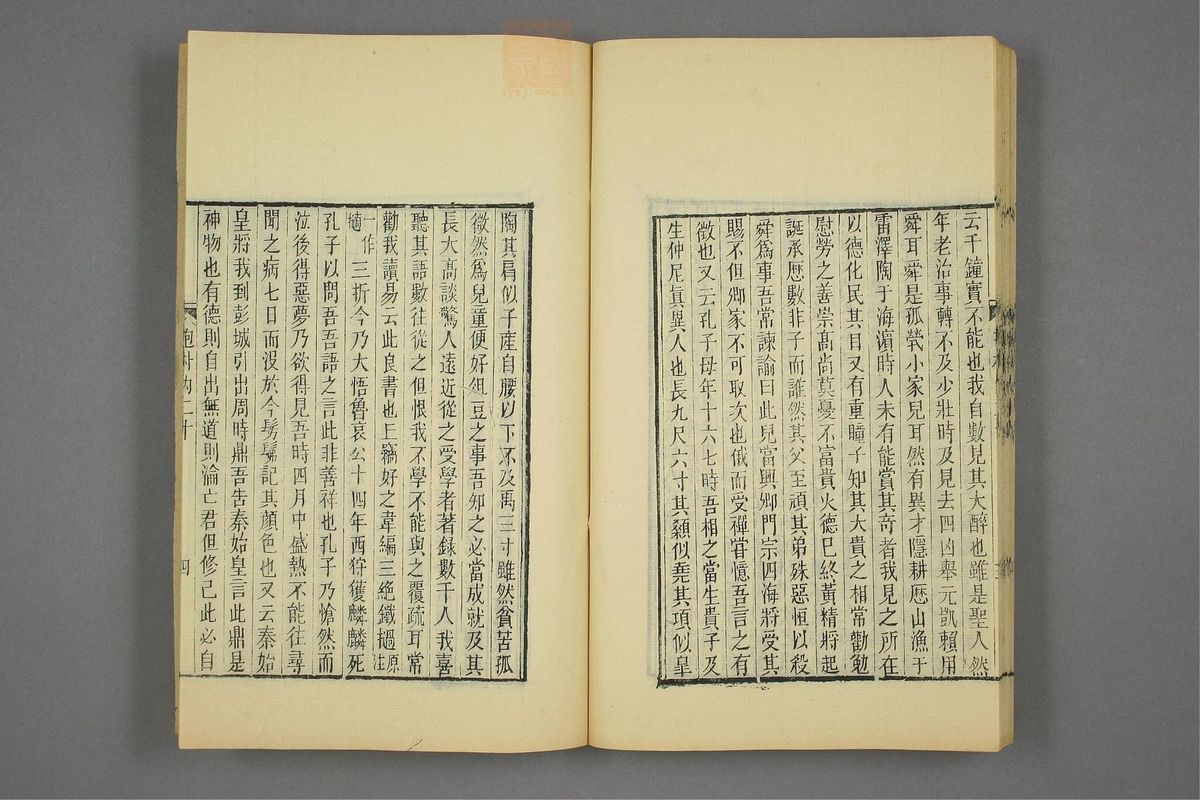 云千鐘實不能也我自數見其大醉也雖是聖人然
年老治事轉不及少壯時及見去四凶舉元凱賴用
舜耳舜是孤煢小家兒耳然有異才隱耕歷山漁于
雷澤陶于海濵時人未有能賞其竒者我見之所在
以德化民其目又有重瞳子知其大貴之相常勸勉
慰勞之善崇髙尚莫憂不富貴火德巳終黃精將起
誕承歷數非子而誰然其父至頑其弟殊惡恒以殺
舜為事吾常諫諭曰此兒當興卿門宗四海將受其
賜不但卿家不可取次也俄而受禪甞憶吾言之有
徵也又云孔子母年十六七時吾相之當生貴子及
生仲尼眞異人也長九尺六寸其顙似堯其項似皐
陶其肩似子產自腰以下不及禹三寸雖然貧苦孤
微然為兒童便好俎豆之事吾知之必當成就及其
長大髙談驚人遠近從之受學者著録數千人我喜
聽其語數往從之但恨我不學不能與之覆疏耳常
勸我讀易云此良書也丘竊好之韋編三絕鐵檛原注
一作擿三折今乃大悟魯哀公十四年西狩獲麟麟死
孔子以問吾吾語之言此非善祥也孔子乃愴然而
泣後得惡夢乃欲得見吾時四月中盛熱不能往尋
聞之病七日而沒於今髣髴記其顏色也又云秦始
皇將我到彭城引出周時鼎吾告秦始皇言此鼎是
神物也有德則自出無道則淪亡君但修己此必自
抱朴内二十
四